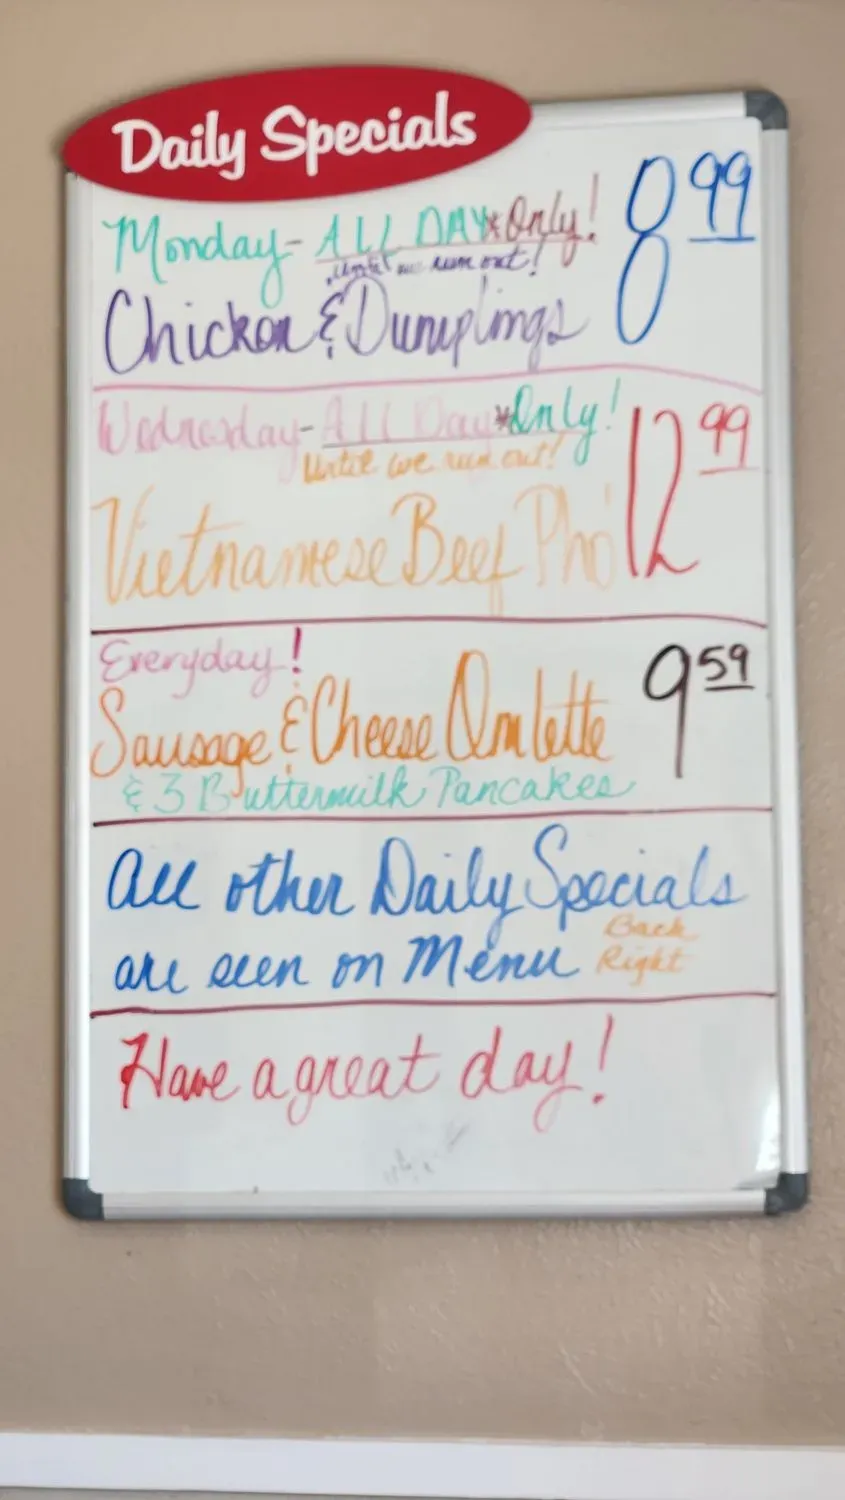 Daily Specials
Monday - ALL DAY * Only! 8 99
until we run out!
Chicken & Dumplings
Wednesday - All Day * Only! 12 99
Until we run out!
Vietnamese Beef Pho
Everyday! 9 59
Sausage & Cheese Omlette
& 3 Buttermilk Pancakes
All other Daily Specials
are seen on Menu Back Right
Have a great day!